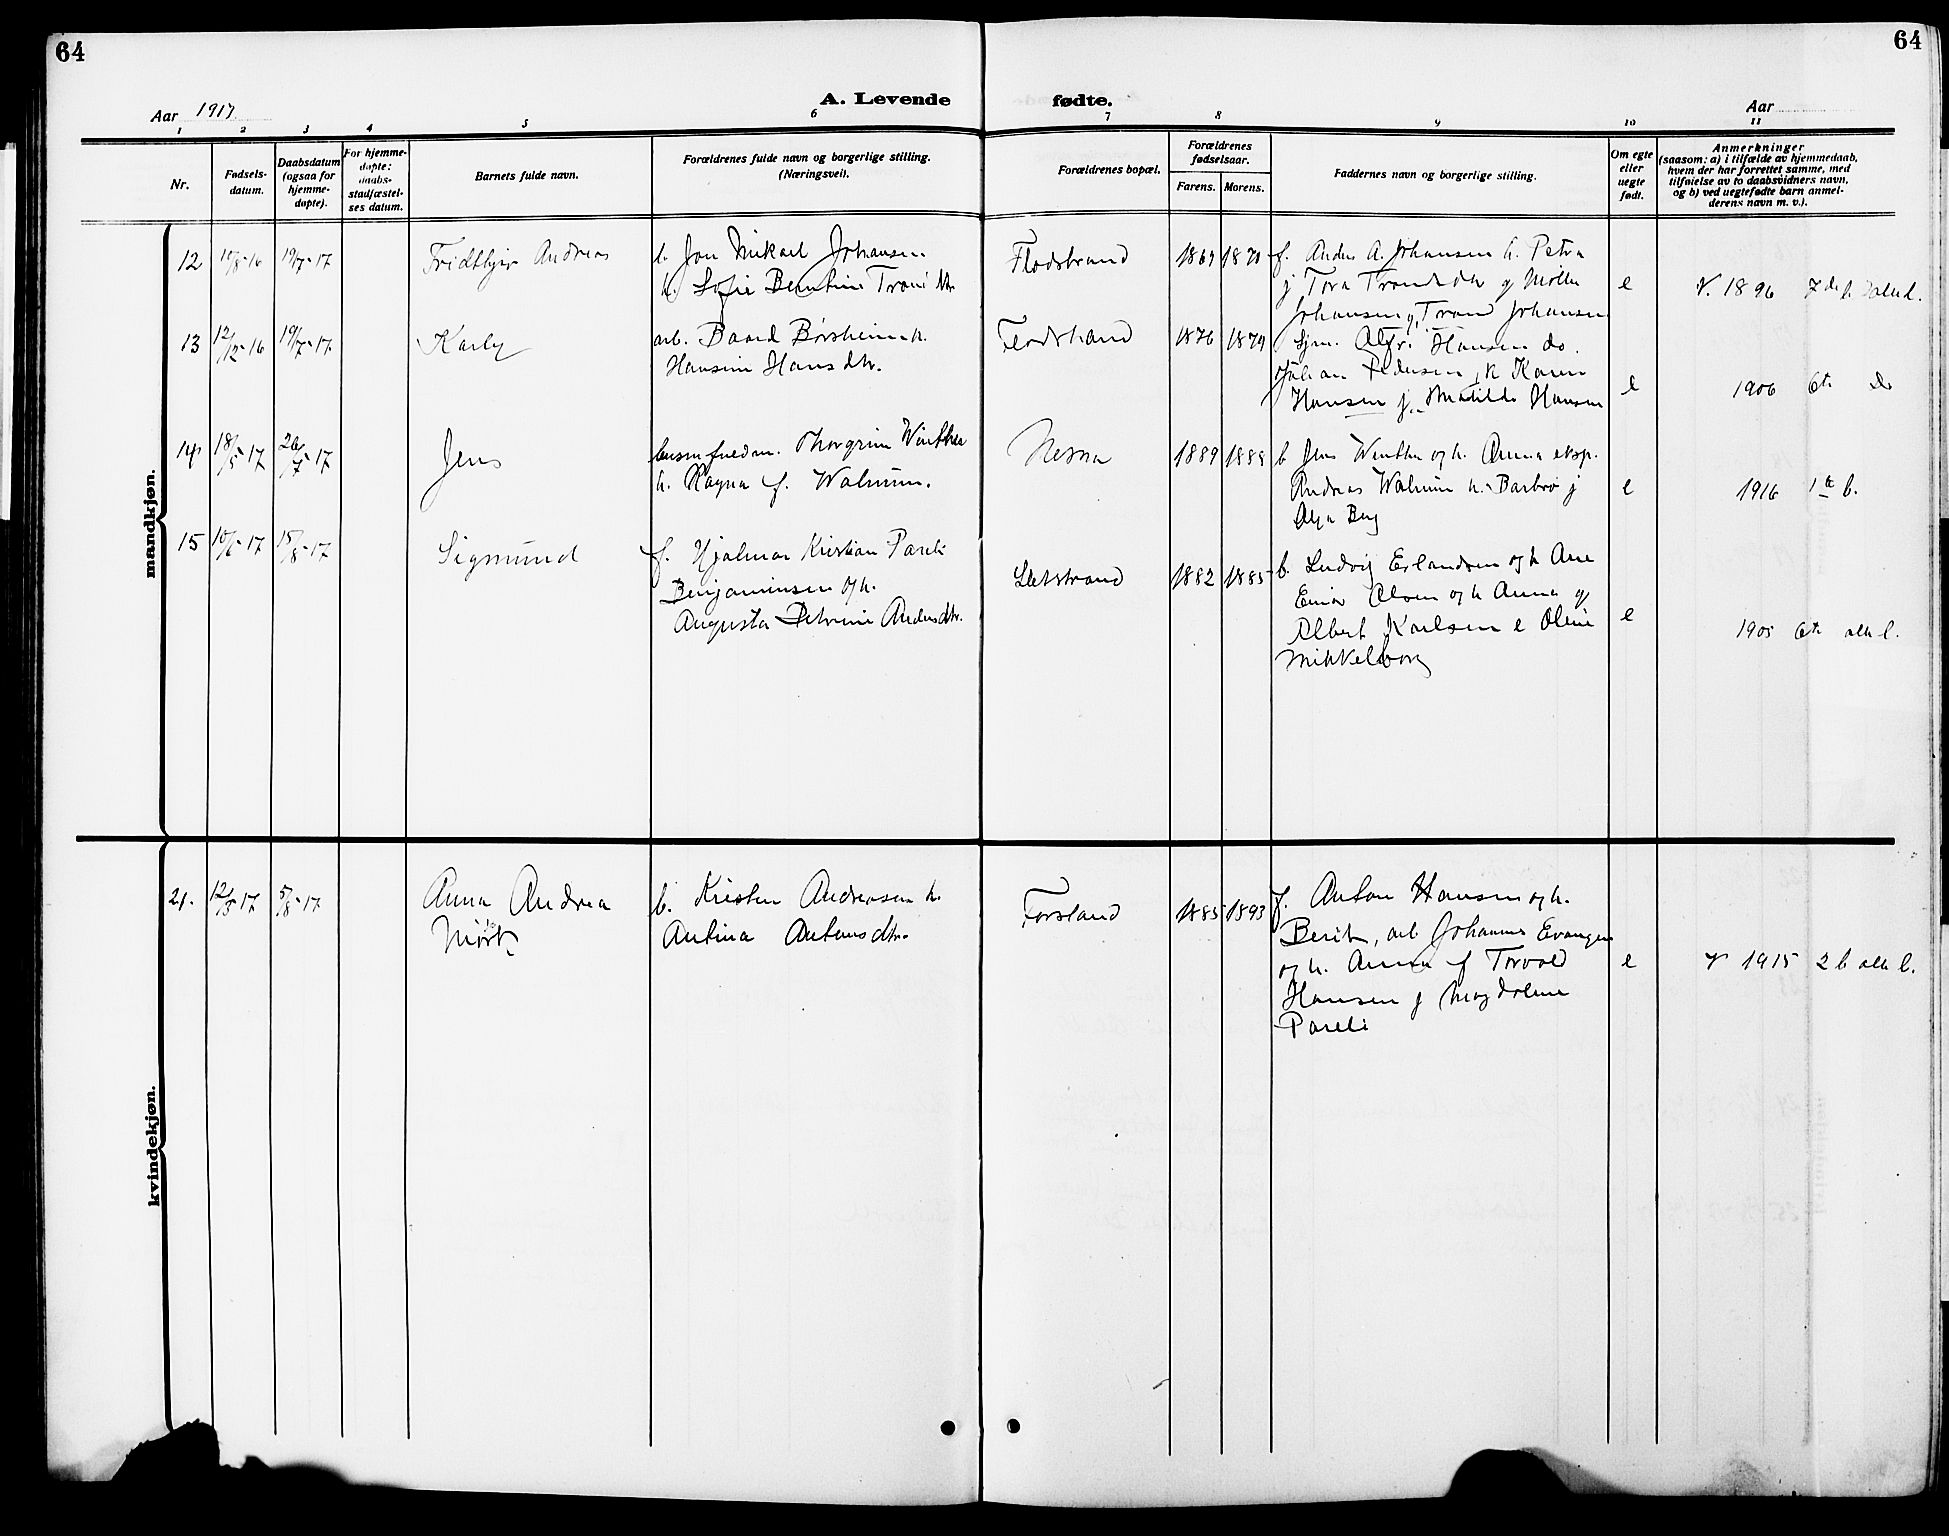 64
64
Aar 1917
A. Levende
fødte.
Aar
1 2 3 4 5 6 7 8 9 10 11
Nr.
Fødsels-
datum.
Daabsdatum
(ogsaa for
hjemme-
døpte).
For hjemme-
døpte:
daabs-
stadfæstel-
ses datum.
Barnets fulde navn.
Forældrenes fulde navn og borgerlige stilling.
(Næringsvei).
Forældrenes bopæl.
Forældrenes
fødselsaar.
Farens. Morens.
Faddernes navn og borgerlige stilling.
Om egte
eller
uegte
født.
Anmerkninger
(saasom: a) i tilfælde av hjemmedaab,
hvem der har forrettet samme, med
tilføielse av to daabsvidners navn,
og b) ved uegtefødte barn anmel-
derens navn m. v.).
mandkjøn.
12 10/8-16 19/7-17
Fridthjov Andreas
b. Jon Mikael Johansen
h. Sofie Berntine Trond dtr.
Flodstrand
1869 1870
f. Anders A. Johansen h. Petra
j Tora Tronds dtr g Møller
Johansen g Trond Johansen
e
V. 1896 7de b.
13 12/12-16 19/7-17
Karly
arb. Baard Børsheim h.
Hansine Hans dtr.
Flodstrand
1876 1879
Sjm. Alfr. Hansen do.
Johan Pedersen, k Karen
Hansen j. Matilde Hansen
e
1906 6te do
14 18/5 17 26/7-17
Jens
Thorgrim Winther
h. Ragna f. Walnum.
Nesna
1889 1888
b Jens Winther og h. Anna eksp.
Andreas Walnum h. Barbro j
Berg
e
1916 1ste b.
15 10/6-17 15/8-17
Sigmund
f. Hjalmar Kristian Pareli
Benjaminsen og h.
Augusta Petrine Anders dtr.
Sletstrand
1882 1885
b. Ludvig Erlandsen og h Ane
Einar Olsen og h Anna g
Albert Karlsen e Oline
Mikkelborg
e
1905 6te alle l.
kvindekjøn.
21. 12/5 17 5/8-17
Anna Andrea
Mørk
b. Kristen Andreasen h.
Antina Antons dtr.
Forsland
1885 1893
f. Anton Hansen og h.
Berit, arb Johannes Evangen
og h. Anna f Torvald
Hansen j Magdalene
Pareli
e
V 1915 2 b alle l.